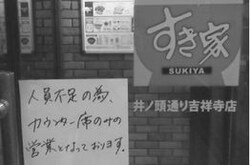 すき家
SUKIYA
井ノ頭通り吉祥寺店
人員不足の為、
カウンター席のみの
営業となっております。